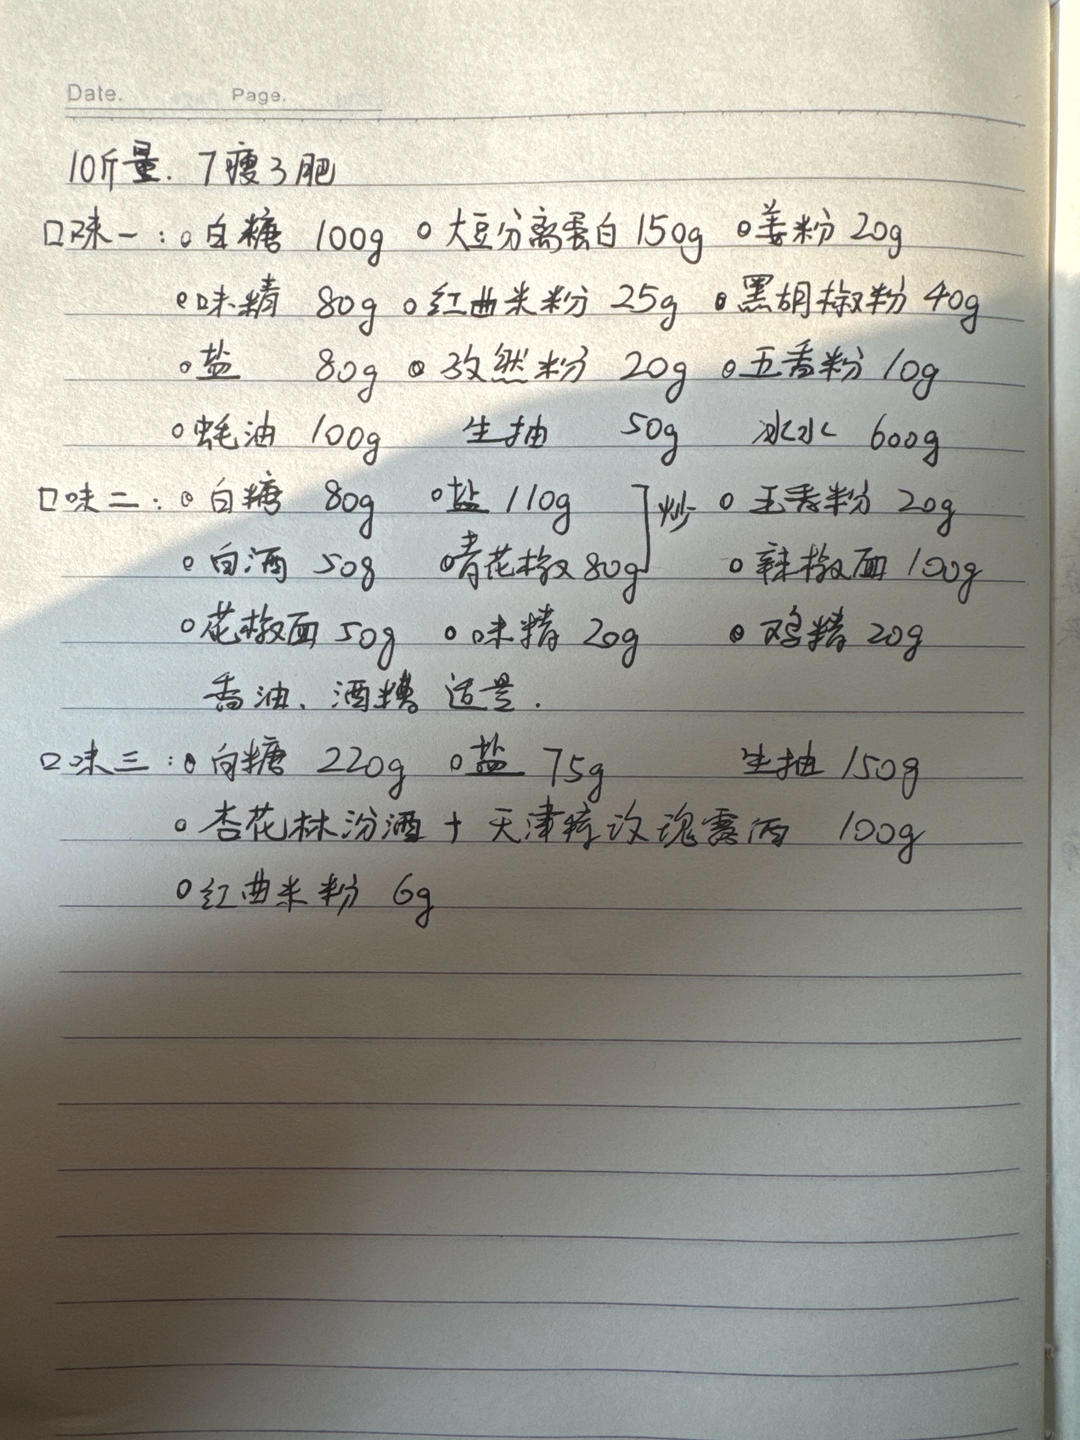 Date. Page.
10斤量. 7瘦3肥
口味一:○白糖 100g ○大豆分离蛋白 150g ○姜粉 20g
○味精 80g ○红曲米粉 25g ○黑胡椒粉 40g
○盐 80g ○孜然粉 20g ○五香粉 10g
○蚝油 100g 生抽 50g 冰水 600g
口味二:○白糖 80g ○盐 110g ]炒 ○五香粉 20g
○白酒 50g ○青花椒 80g ○辣椒面 100g
○花椒面 50g ○味精 20g ○鸡精 20g
香油、酒糟 适量.
口味三:○白糖 220g ○盐 75g 生抽 150g
○杏花林汾酒+天津 玫瑰露酒 100g
○红曲米粉 6g